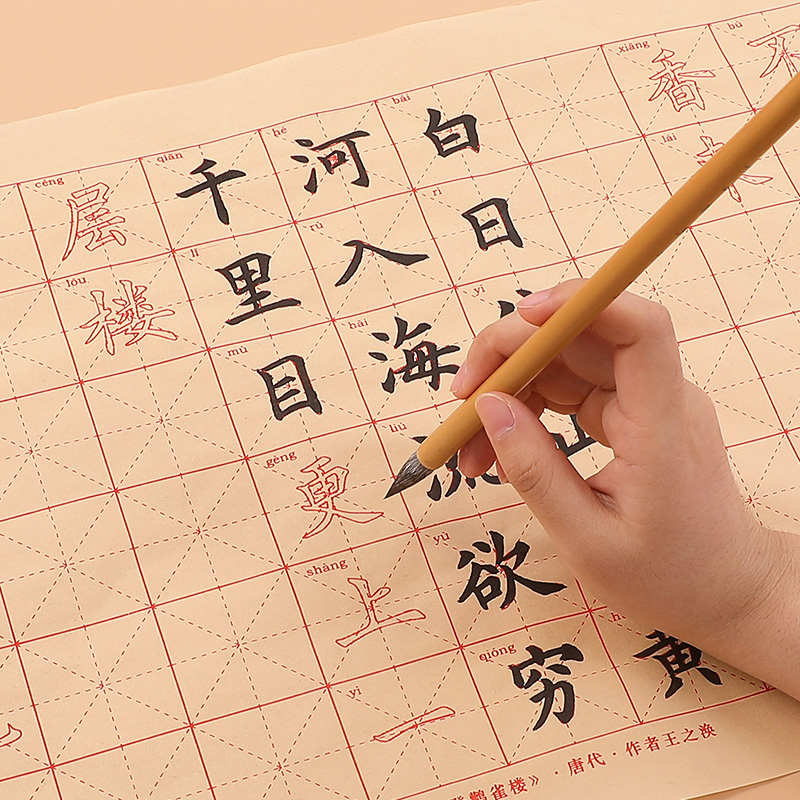 bù 不
xiāng 香 lái 来
bái 白 rì 日 yī 山 黄
hé 河 rù 入 hǎi 海 liú 流 yù 欲 qióng 穷
qiān 千 lǐ 里 mù 目 gèng 更 shàng 上 yī 一
céng 层 lóu 楼
鹳雀楼》·唐代·作者王之涣